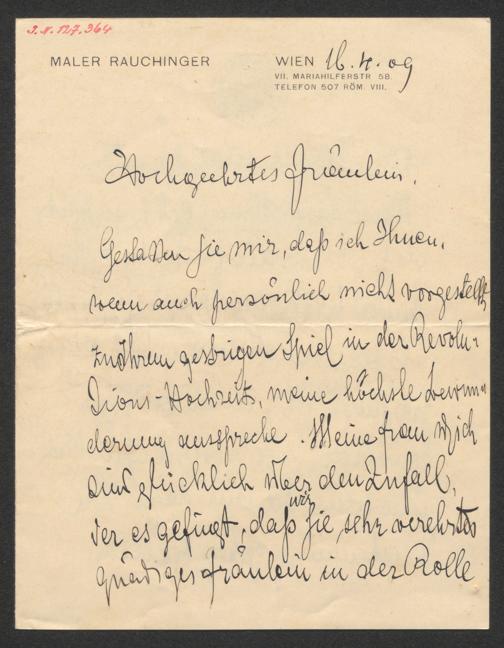 I.N. 127.364
MALER RAUCHINGER
WIEN 16.4.09
VII. MARIAHILFERSTR 58.
TELEFON 507 RÖM. VIII.
Hochgeehrtes Fräulein.
Gestatten Sie mir, daß ich Ihnen,
wenn auch persönlich nicht vorgestellt,
zu Ihrem gestrigen Spiel in der Revolu-
tions-Hochzeit, meine höchste Bewun-
derung ausspreche. Meine Frau u ich
sind glücklich über den Zufall,
der es gefügt, daß wir Sie sehr verehrtes
gnädiges Fräulein in der Rolle